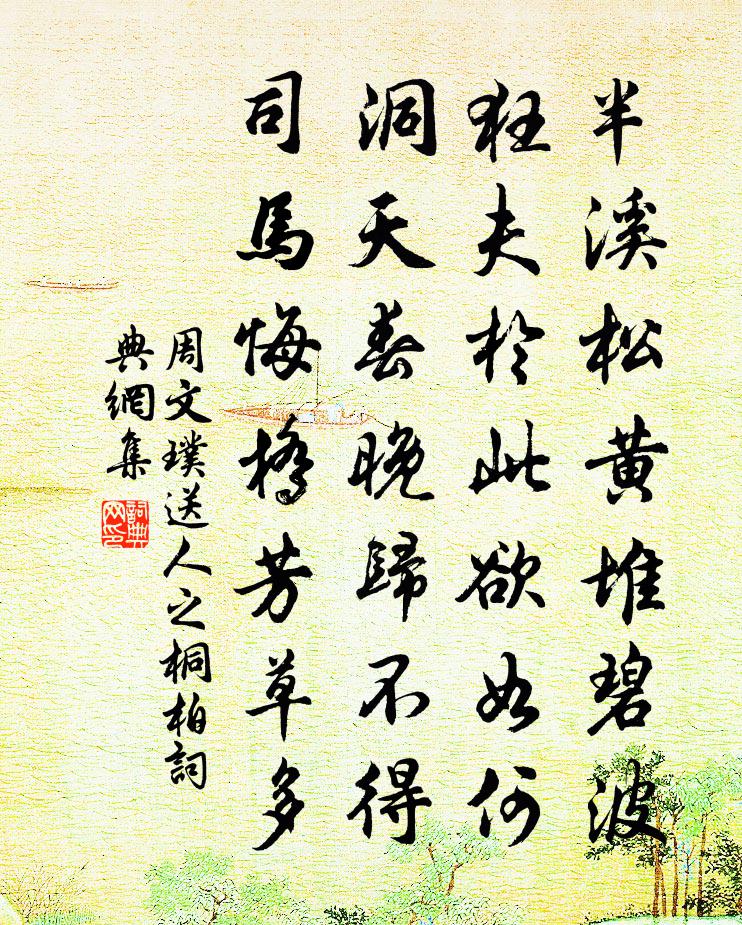 半溪松黄堆碧波
狂夫於此欲如何
洞天春晚歸不得
司馬悔橋芳草多
周文璞送人之桐柏詞
典網集
詞典
网印